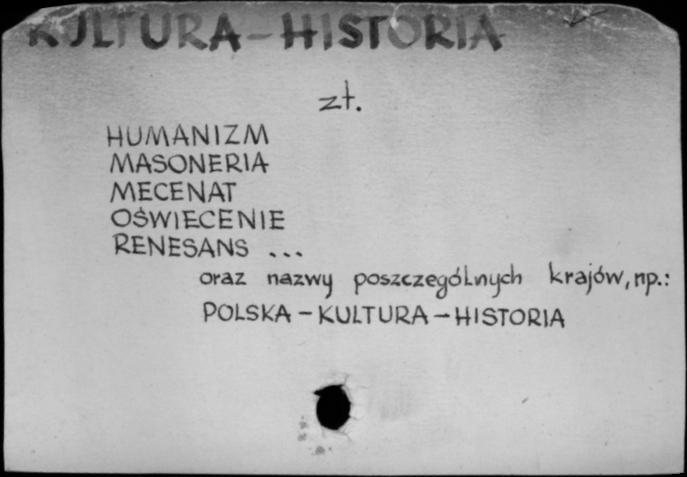 KULTURA - HISTORIA
zł.
HUMANIZM
MASONERIA
MECENAT
OŚWIECENIE
RENESANS ...
oraz nazwy poszczególnych krajów, np.:
POLSKA - KULTURA - HISTORIA